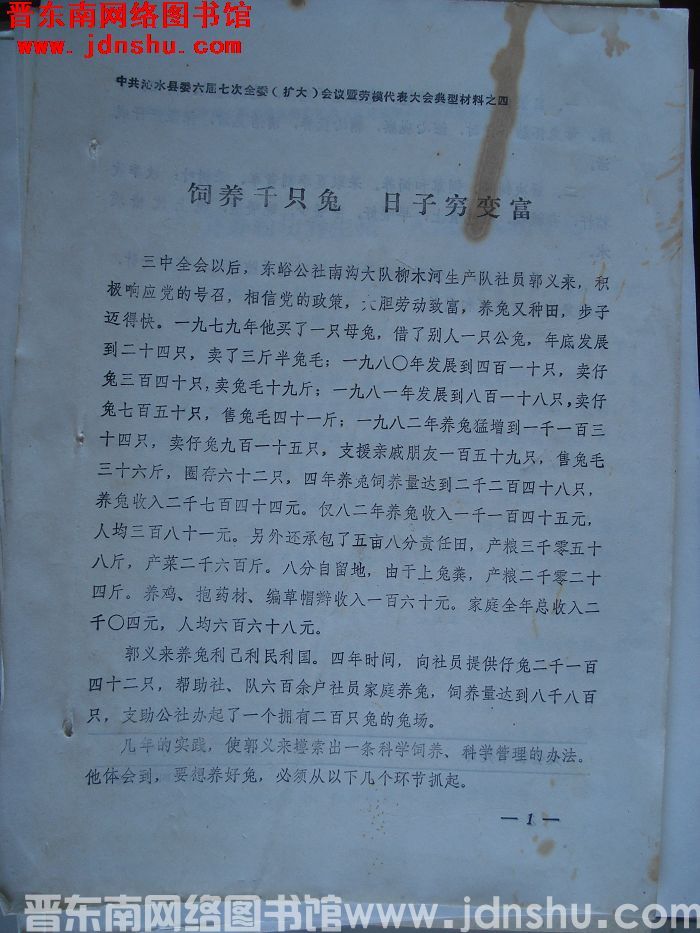 晋东南网络图书馆
www.jdnshu.com
中共沁水县委六届七次全委（扩大）会议暨劳模代表大会典型材料之四
饲养千只兔　日子穷变富
三中全会以后，东峪公社南沟大队柳木河生产队社员郭义来，积
极响应党的号召，相信党的政策，大胆劳动致富，养兔又种田，步子
迈得快。一九七九年他买了一只母兔，借了别人一只公兔，年底发展
到二十四只，卖了三斤半兔毛；一九八〇年发展到四百一十只，卖仔
兔三百四十只，卖兔毛十九斤；一九八一年发展到八百一十八只，卖仔
兔七百五十只，售兔毛四十一斤；一九八二年养兔猛增到一千一百三
十四只，卖仔兔九百一十五只，支援亲戚朋友一百五十九只，售兔毛
三十六斤，圈存六十二只，四年养兔饲养量达到二千二百四十八只，
养兔收入二千七百四十四元。仅八二年养兔收入一千一百四十五元，
人均三百八十一元。另外还承包了五亩八分责任田，产粮三千零五十
八斤，产菜二千六百斤。八分自留地，由于上兔粪，产粮二千零二十
四斤。养鸡、抱药材、编草帽辫收入一百六十元。家庭全年总收入二
千〇四元，人均六百六十八元。
郭义来养兔利己利民利国。四年时间，向社员提供仔兔二千一百
四十二只，帮助社、队六百余户社员家庭养兔，饲养量达到八千八百
只，支助公社办起了一个拥有二百只兔的兔场。
几年的实践，使郭义来摸索出一条科学饲养、科学管理的办法。
他体会到，要想养好兔，必须从以下几个环节抓起。
— 1 —
晋东南网络图书馆www.jdnshu.com